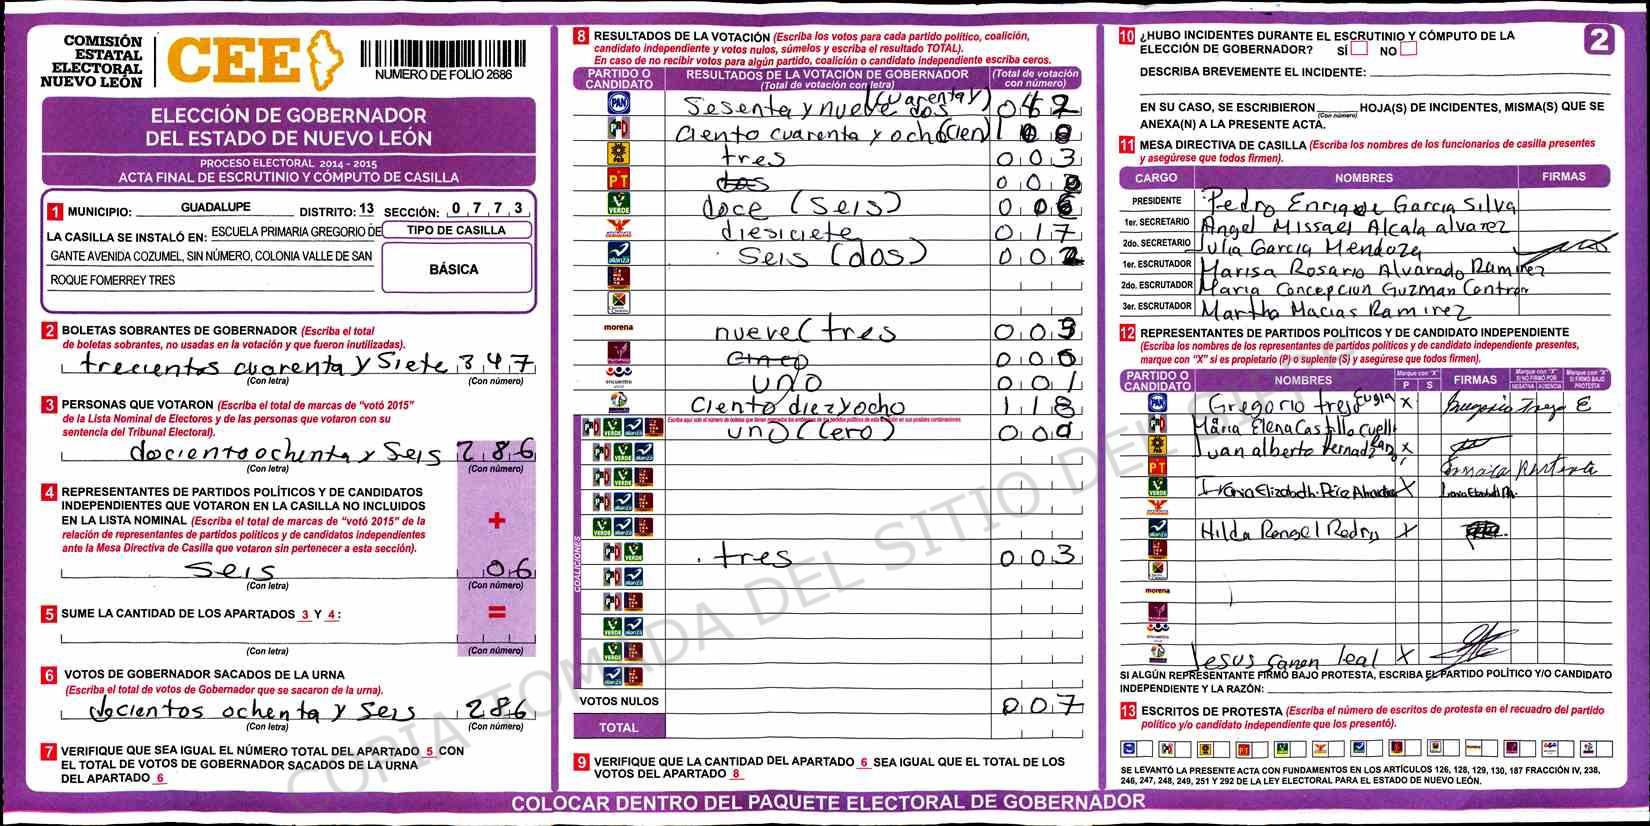 COMISIÓN
ESTATAL
ELECTORAL
NUEVO LEÓN
CEE
NUMERO DE FOLIO 2686
ELECCIÓN DE GOBERNADOR
DEL ESTADO DE NUEVO LEÓN
PROCESO ELECTORAL 2014 - 2015
ACTA FINAL DE ESCRUTINIO Y CÓMPUTO DE CASILLA
1 MUNICIPIO: GUADALUPE DISTRITO: 13 SECCIÓN: 0 7 7 3
LA CASILLA SE INSTALÓ EN: ESCUELA PRIMARIA GREGORIO DE
GANTE AVENIDA COZUMEL, SIN NÚMERO, COLONIA VALLE DE SAN
ROQUE FOMERREY TRES
TIPO DE CASILLA
BÁSICA
2 BOLETAS SOBRANTES DE GOBERNADOR (Escriba el total
de boletas sobrantes, no usadas en la votación y que fueron inutilizadas).
trecientos cuarenta y siete 3 4 7
(Con letra) (Con número)
3 PERSONAS QUE VOTARON (Escriba el total de marcas de "votó 2015"
de la Lista Nominal de Electores y de las personas que votaron con su
sentencia del Tribunal Electoral).
docientoochenta y seis 2 8 6
(Con letra) (Con número)
4 REPRESENTANTES DE PARTIDOS POLÍTICOS Y DE CANDIDATOS
INDEPENDIENTES QUE VOTARON EN LA CASILLA NO INCLUIDOS
EN LA LISTA NOMINAL (Escriba el total de marcas de "votó 2015" de la
relación de representantes de partidos políticos y de candidatos independientes
ante la Mesa Directiva de Casilla que votaron sin pertenecer a esta sección).
+
seis 0 6
(Con letra) (Con número)
5 SUME LA CANTIDAD DE LOS APARTADOS 3 Y 4 : =
(Con letra) (Con número)
6 VOTOS DE GOBERNADOR SACADOS DE LA URNA
(Escriba el total de votos de Gobernador que se sacaron de la urna).
docientos ochenta y seis 2 8 6
(Con letra) (Con número)
7 VERIFIQUE QUE SEA IGUAL EL NÚMERO TOTAL DEL APARTADO 5 CON
EL TOTAL DE VOTOS DE GOBERNADOR SACADOS DE LA URNA
DEL APARTADO 6
8 RESULTADOS DE LA VOTACIÓN (Escriba los votos para cada partido político, coalición,
candidato independiente y votos nulos, súmelos y escriba el resultado TOTAL).
En caso de no recibir votos para algún partido, coalición o candidato independiente escriba ceros.
PARTIDO O CANDIDATO
RESULTADOS DE LA VOTACIÓN DE GOBERNADOR
(Total de votación con letra)
(Total de votación con número)
PAN sesenta y nueve (cuarenta y dos 0 4 2
PRI ciento cuarenta y ocho (cien) 1
PRD tres 0 0 3
PT dos 0 0
VERDE doce (seis) 0 0 6
diesiciete 0 1 7
alianza seis (dos) 0 0 2
morena nueve (tres 0 0
cinco 0 0
encuentro social uno 0 0 1
ciento diez y ocho 1 1 8
COALICIONES
uno (cero) 0 0
tres 0 0 3
VOTOS NULOS 0 0 7
TOTAL
9 VERIFIQUE QUE LA CANTIDAD DEL APARTADO 6 SEA IGUAL QUE EL TOTAL DE LOS
VOTOS DEL APARTADO 8
2
10 ¿HUBO INCIDENTES DURANTE EL ESCRUTINIO Y CÓMPUTO DE LA
ELECCIÓN DE GOBERNADOR? SÍ NO
DESCRIBA BREVEMENTE EL INCIDENTE:
EN SU CASO, SE ESCRIBIERON HOJA(S) DE INCIDENTES, MISMA(S) QUE SE
(Con número)
ANEXA(N) A LA PRESENTE ACTA.
11 MESA DIRECTIVA DE CASILLA (Escriba los nombres de los funcionarios de casilla presentes
y asegúrese que todos firmen).
CARGO NOMBRES FIRMAS
PRESIDENTE Pedro Enrique Garcia Silva
1er. SECRETARIO Angel Missael Alcala alvarez
2do. SECRETARIO Julia Garcia Mendoza
1er. ESCRUTADOR Marisa Rosario Alvarado Ramirez
2do. ESCRUTADOR Maria Concepcion Guzman
3er. ESCRUTADOR Martha Macias Ramirez
12 REPRESENTANTES DE PARTIDOS POLÍTICOS Y DE CANDIDATO INDEPENDIENTE
(Escriba los nombres de los representantes de partidos políticos y de candidato independiente presentes,
marque con "X" si es propietario (P) o suplente (S) y asegúrese que todos firmen).
PARTIDO O CANDIDATO NOMBRES
Marque con "X"
P S
FIRMAS
Marque con "X"
SI NO FIRMÓ POR
NEGATIVA AUSENCIA
Marque con "X"
SI FIRMÓ BAJO
PROTESTA
Gregorio trejo X
Maria Elena Castillo
Juan alberto X
X
Hilda Rangel X
morena
Jesus leal X
SI ALGÚN REPRESENTANTE FIRMÓ BAJO PROTESTA, ESCRIBA EL PARTIDO POLÍTICO Y/O CANDIDATO
INDEPENDIENTE Y LA RAZÓN:
13 ESCRITOS DE PROTESTA (Escriba el número de escritos de protesta en el recuadro del partido
político y/o candidato independiente que los presentó).
SE LEVANTÓ LA PRESENTE ACTA CON FUNDAMENTOS EN LOS ARTÍCULOS 126, 128, 129, 130, 187 FRACCIÓN IV, 238,
246, 247, 248, 249, 251 Y 292 DE LA LEY ELECTORAL PARA EL ESTADO DE NUEVO LEÓN.
COLOCAR DENTRO DEL PAQUETE ELECTORAL DE GOBERNADOR
COPIA TOMADA DEL SITIO DEL